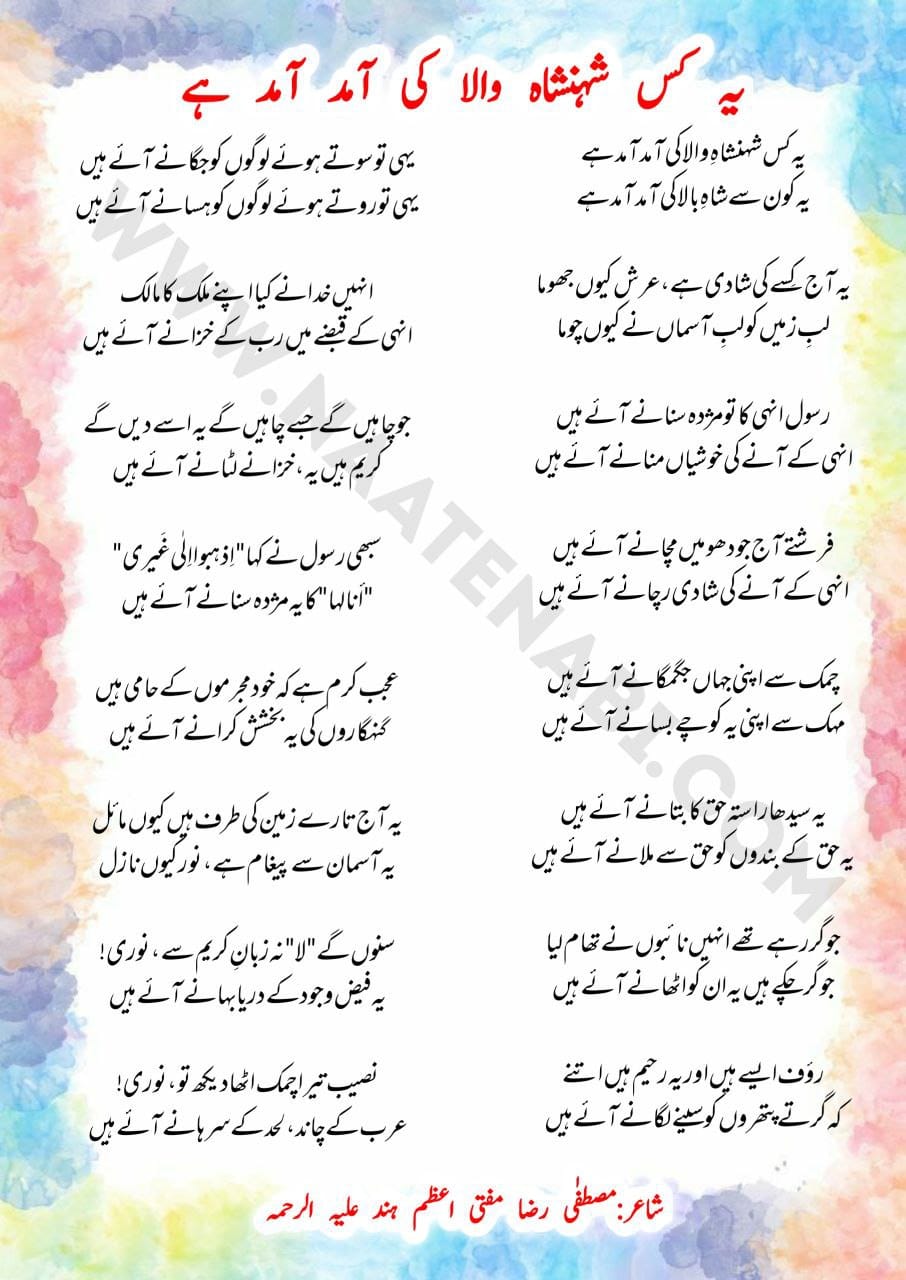 یہ کس شہنشاہ والا کی آمد آمد ہے
یہ کس شہنشاہِ والا کی آمد آمد ہے
یہ کون سے شاہِ بالا کی آمد آمد ہے
یہ آج کِسے کی شادی ہے، عرش کیوں جھوما
لبِ زمیں کو لبِ آسماں نے کیوں چوما
رسول انہی کا تو مژدہ سنانے آئے ہیں
انہی کے آنے کی خوشیاں منانے آئے ہیں
فرشتے آج جو دھومیں مچانے آئے ہیں
انہی کے آنے کی شادی رچانے آئے ہیں
چمک سے اپنی جہاں جگمگانے آئے ہیں
مہک سے اپنی یہ کوچے بسانے آئے ہیں
یہ سیدھا راستہ حق کا بتانے آئے ہیں
یہ حق کے بندوں کو حق سے ملانے آئے ہیں
جو گر رہے تھے انہیں نائبوں نے تھام لیا
جو گر چکے ہیں یہ ان کو اٹھانے آئے ہیں
رؤف ایسے ہیں اور یہ رحیم ہیں اتنے
کہ گرتے پتھروں کو سینے لگانے آئے ہیں
یہی تو سوتے ہوئے لوگوں کو جگانے آئے ہیں
یہی تو روتے ہوئے لوگوں کو ہسانے آئے ہیں
انہیں خدا نے کیا اپنے ملک کا مالک
انہی کے قبضے میں رب کے خزانے آئے ہیں
جو چاہیں گے جسے چاہیں گے یہ اسے دیں گے
کریم ہیں یہ، خزانے لٹانے آئے ہیں
سبھی رسول نے کہا "اِذہبوا اِلٰی غَیری"
"أنا لہا" کا یہ مژدہ سنانے آئے ہیں
عجب کرم ہے کہ خود مجرموں کے حامی ہیں
گنہگاروں کی یہ بخشش کرانے آئے ہیں
یہ آج تارے زمین کی طرف ہیں کیوں مائل
یہ آسمان سے پیغام ہے، نور کیوں نازل
سنوں گے "لا" نہ زبانِ کریم سے، نوری!
یہ فیض وجود کے دریا بہانے آئے ہیں
نصیب تیرا چمک اٹھا دیکھ تو، نوری!
عرب کے چاند، لحد کے سرہانے آئے ہیں
شاعر: مصطفٰی رضا مفتی اعظم ہند علیہ الرحمہ
WWW.NAATENABI.COM